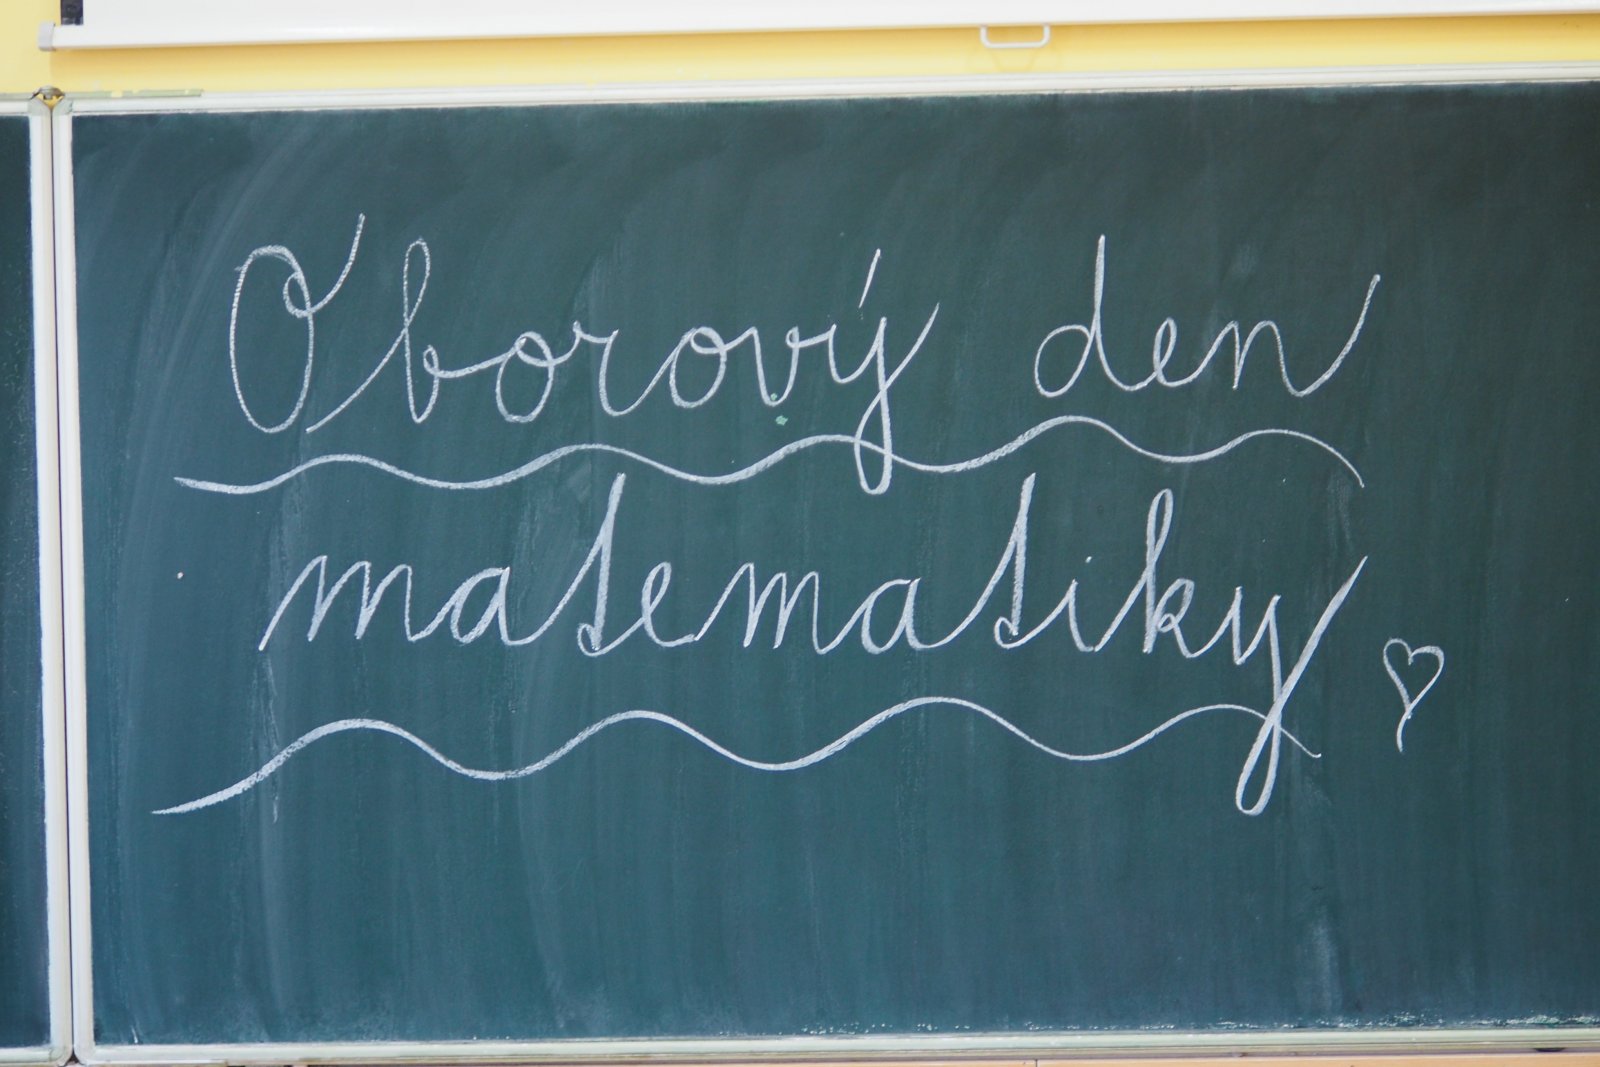 Oborový den
matematiky